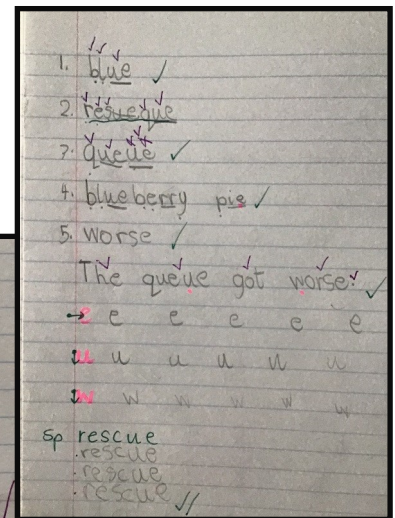 1. blue ✓
2. rescueque
3. queue ✓
4. blueberry pie ✓
5. worse ✓
The queue got worse. ✓
→ e e e e e e
u u u u u u
w w w w w w
Sp rescue
rescue
rescue
rescue ✓✓